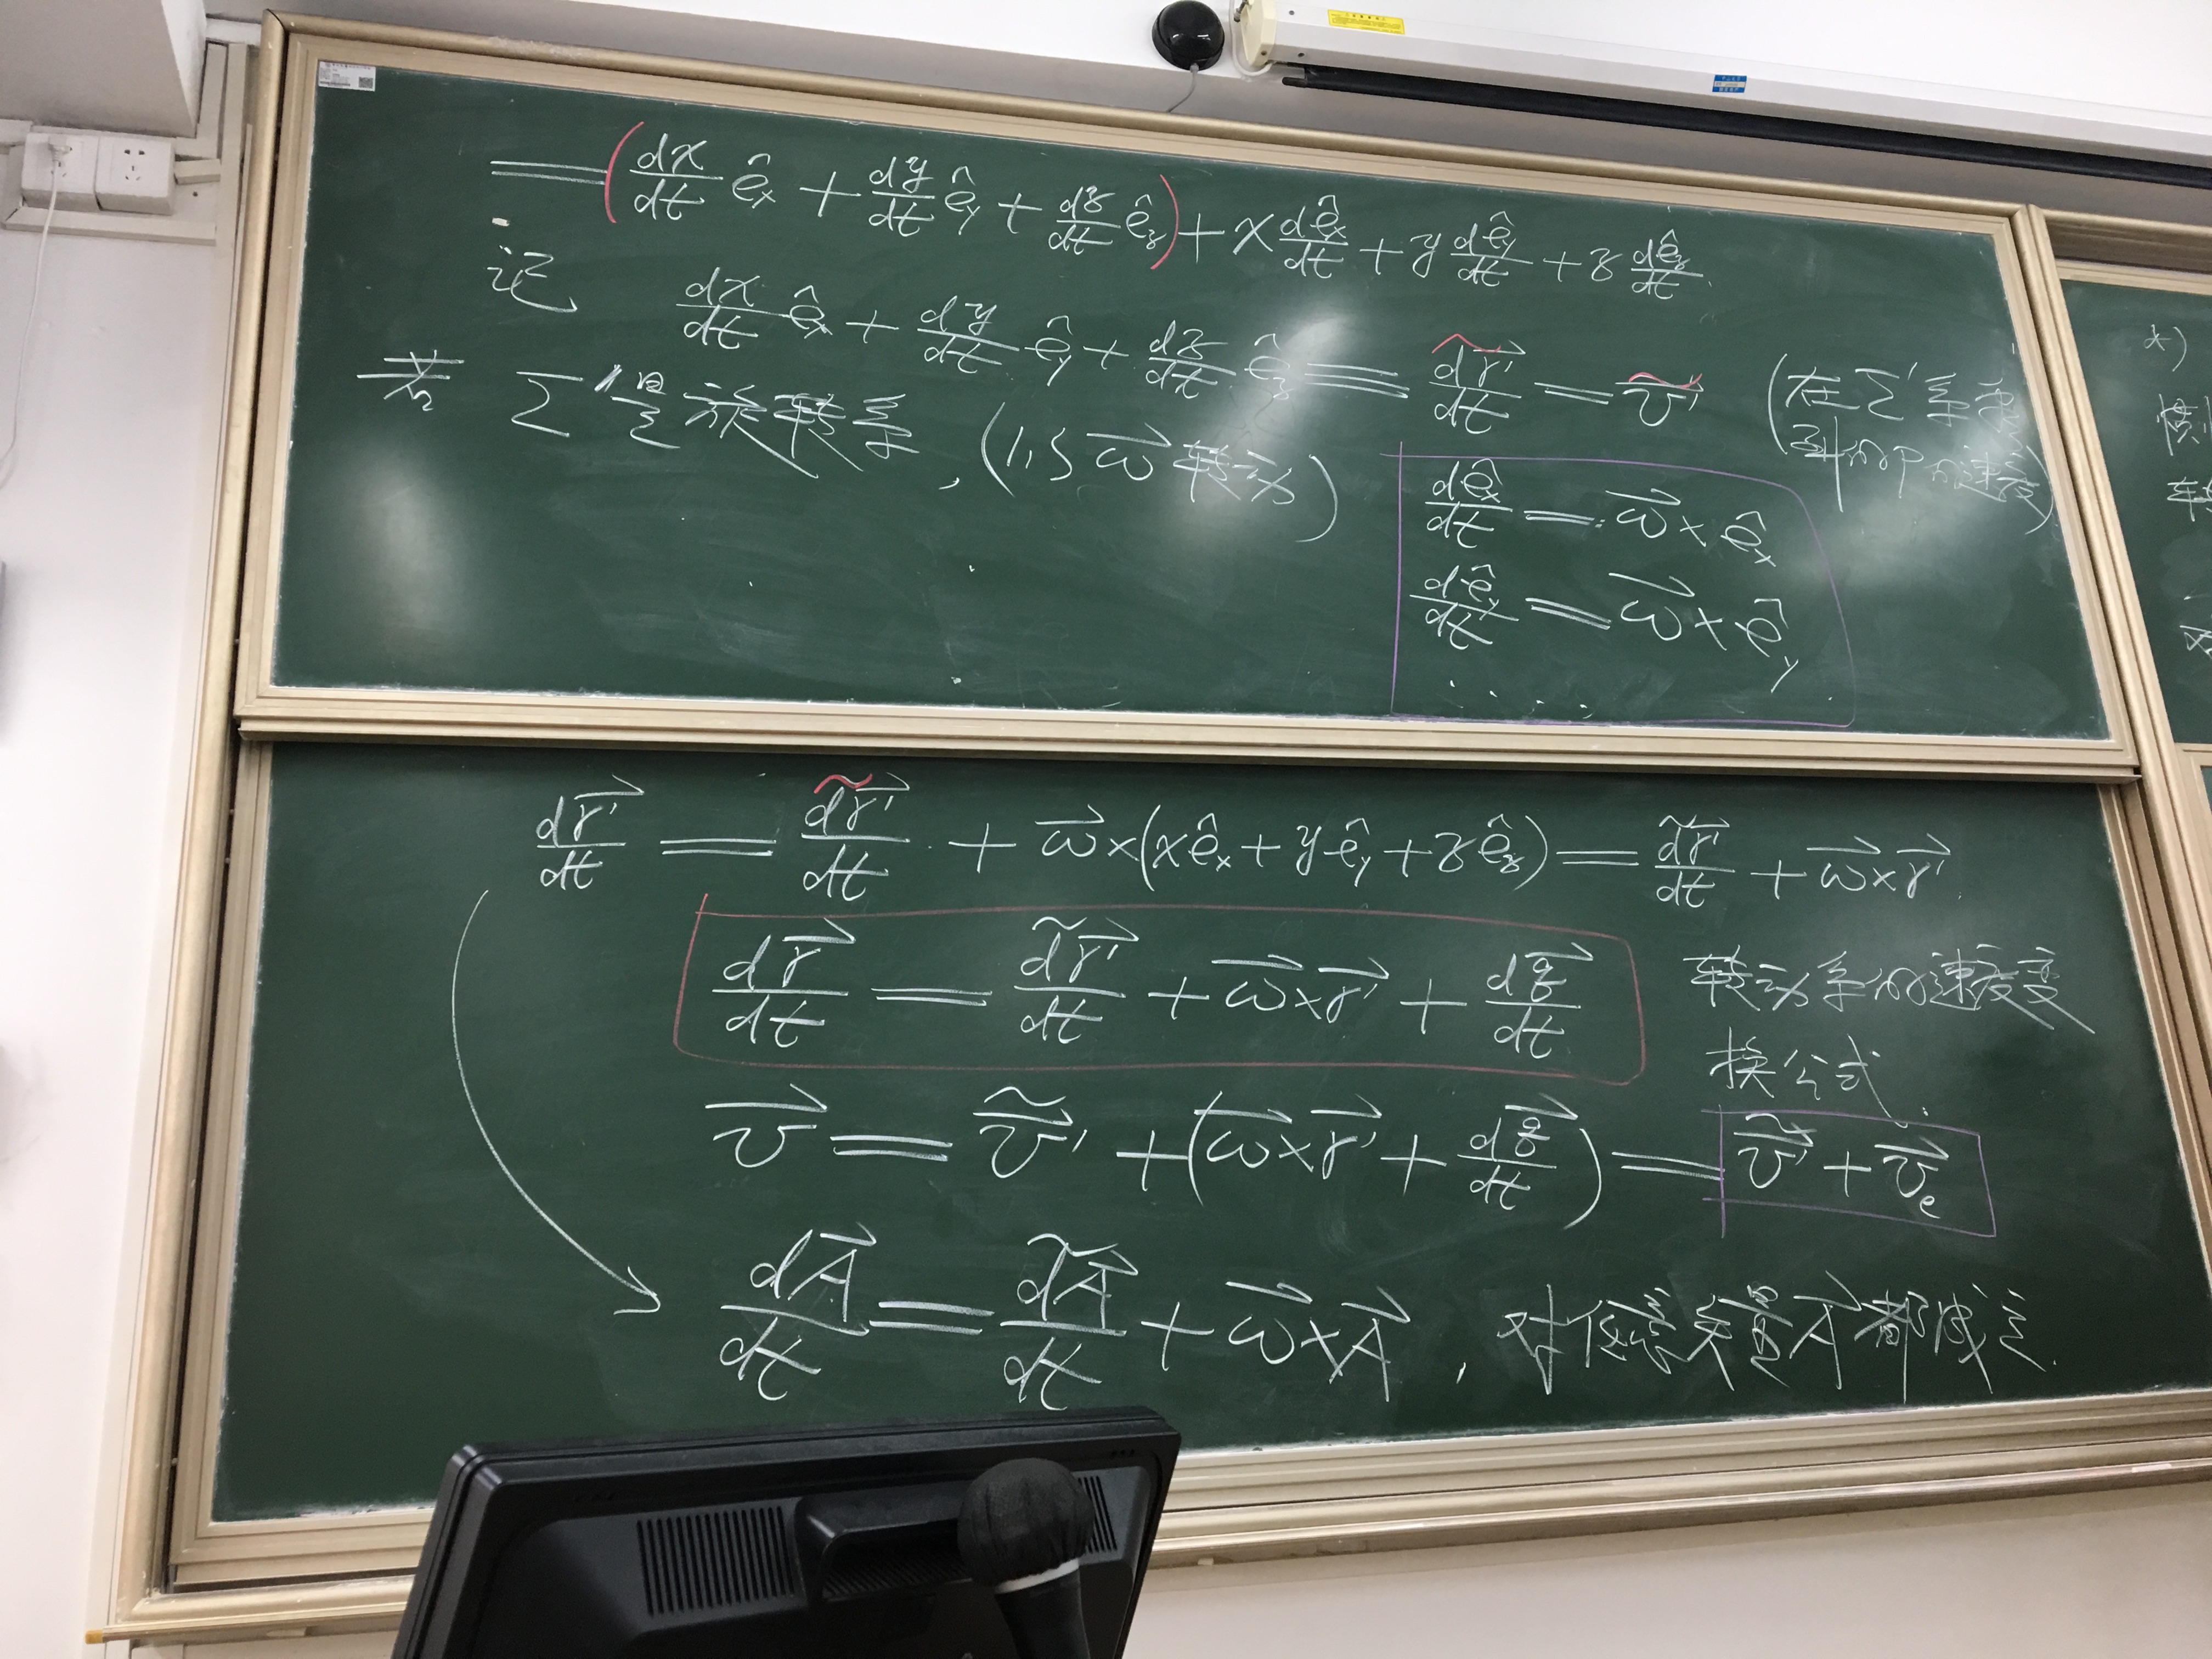 = (dx/dt ê_x + dy/dt ê_y + dz/dt ê_z) + x dê_x/dt + y dê_y/dt + z dê_z/dt
记 dx/dt ê_x + dy/dt ê_y + dz/dt ê_z ≡ d̃r⃗'/dt = ṽ⃗' (在Σ'系看
到的P的速度)
若 Σ'是旋转系, (以ω⃗转动)
dê_x/dt = ω⃗ × ê_x
dê_y/dt = ω⃗ × ê_y
......
dr⃗'/dt = d̃r⃗'/dt + ω⃗ × (xê_x + yê_y + zê_z) = d̃r⃗'/dt + ω⃗ × r⃗'
dr⃗/dt = d̃r⃗'/dt + ω⃗ × r⃗' +
转动系的速度变
换公式.
v⃗ = ṽ⃗' + (ω⃗ × r⃗' + ) = ṽ⃗' + v⃗_e
dA⃗/dt = d̃A⃗/dt + ω⃗ × A⃗, 对任意矢量A⃗都成立.
*)